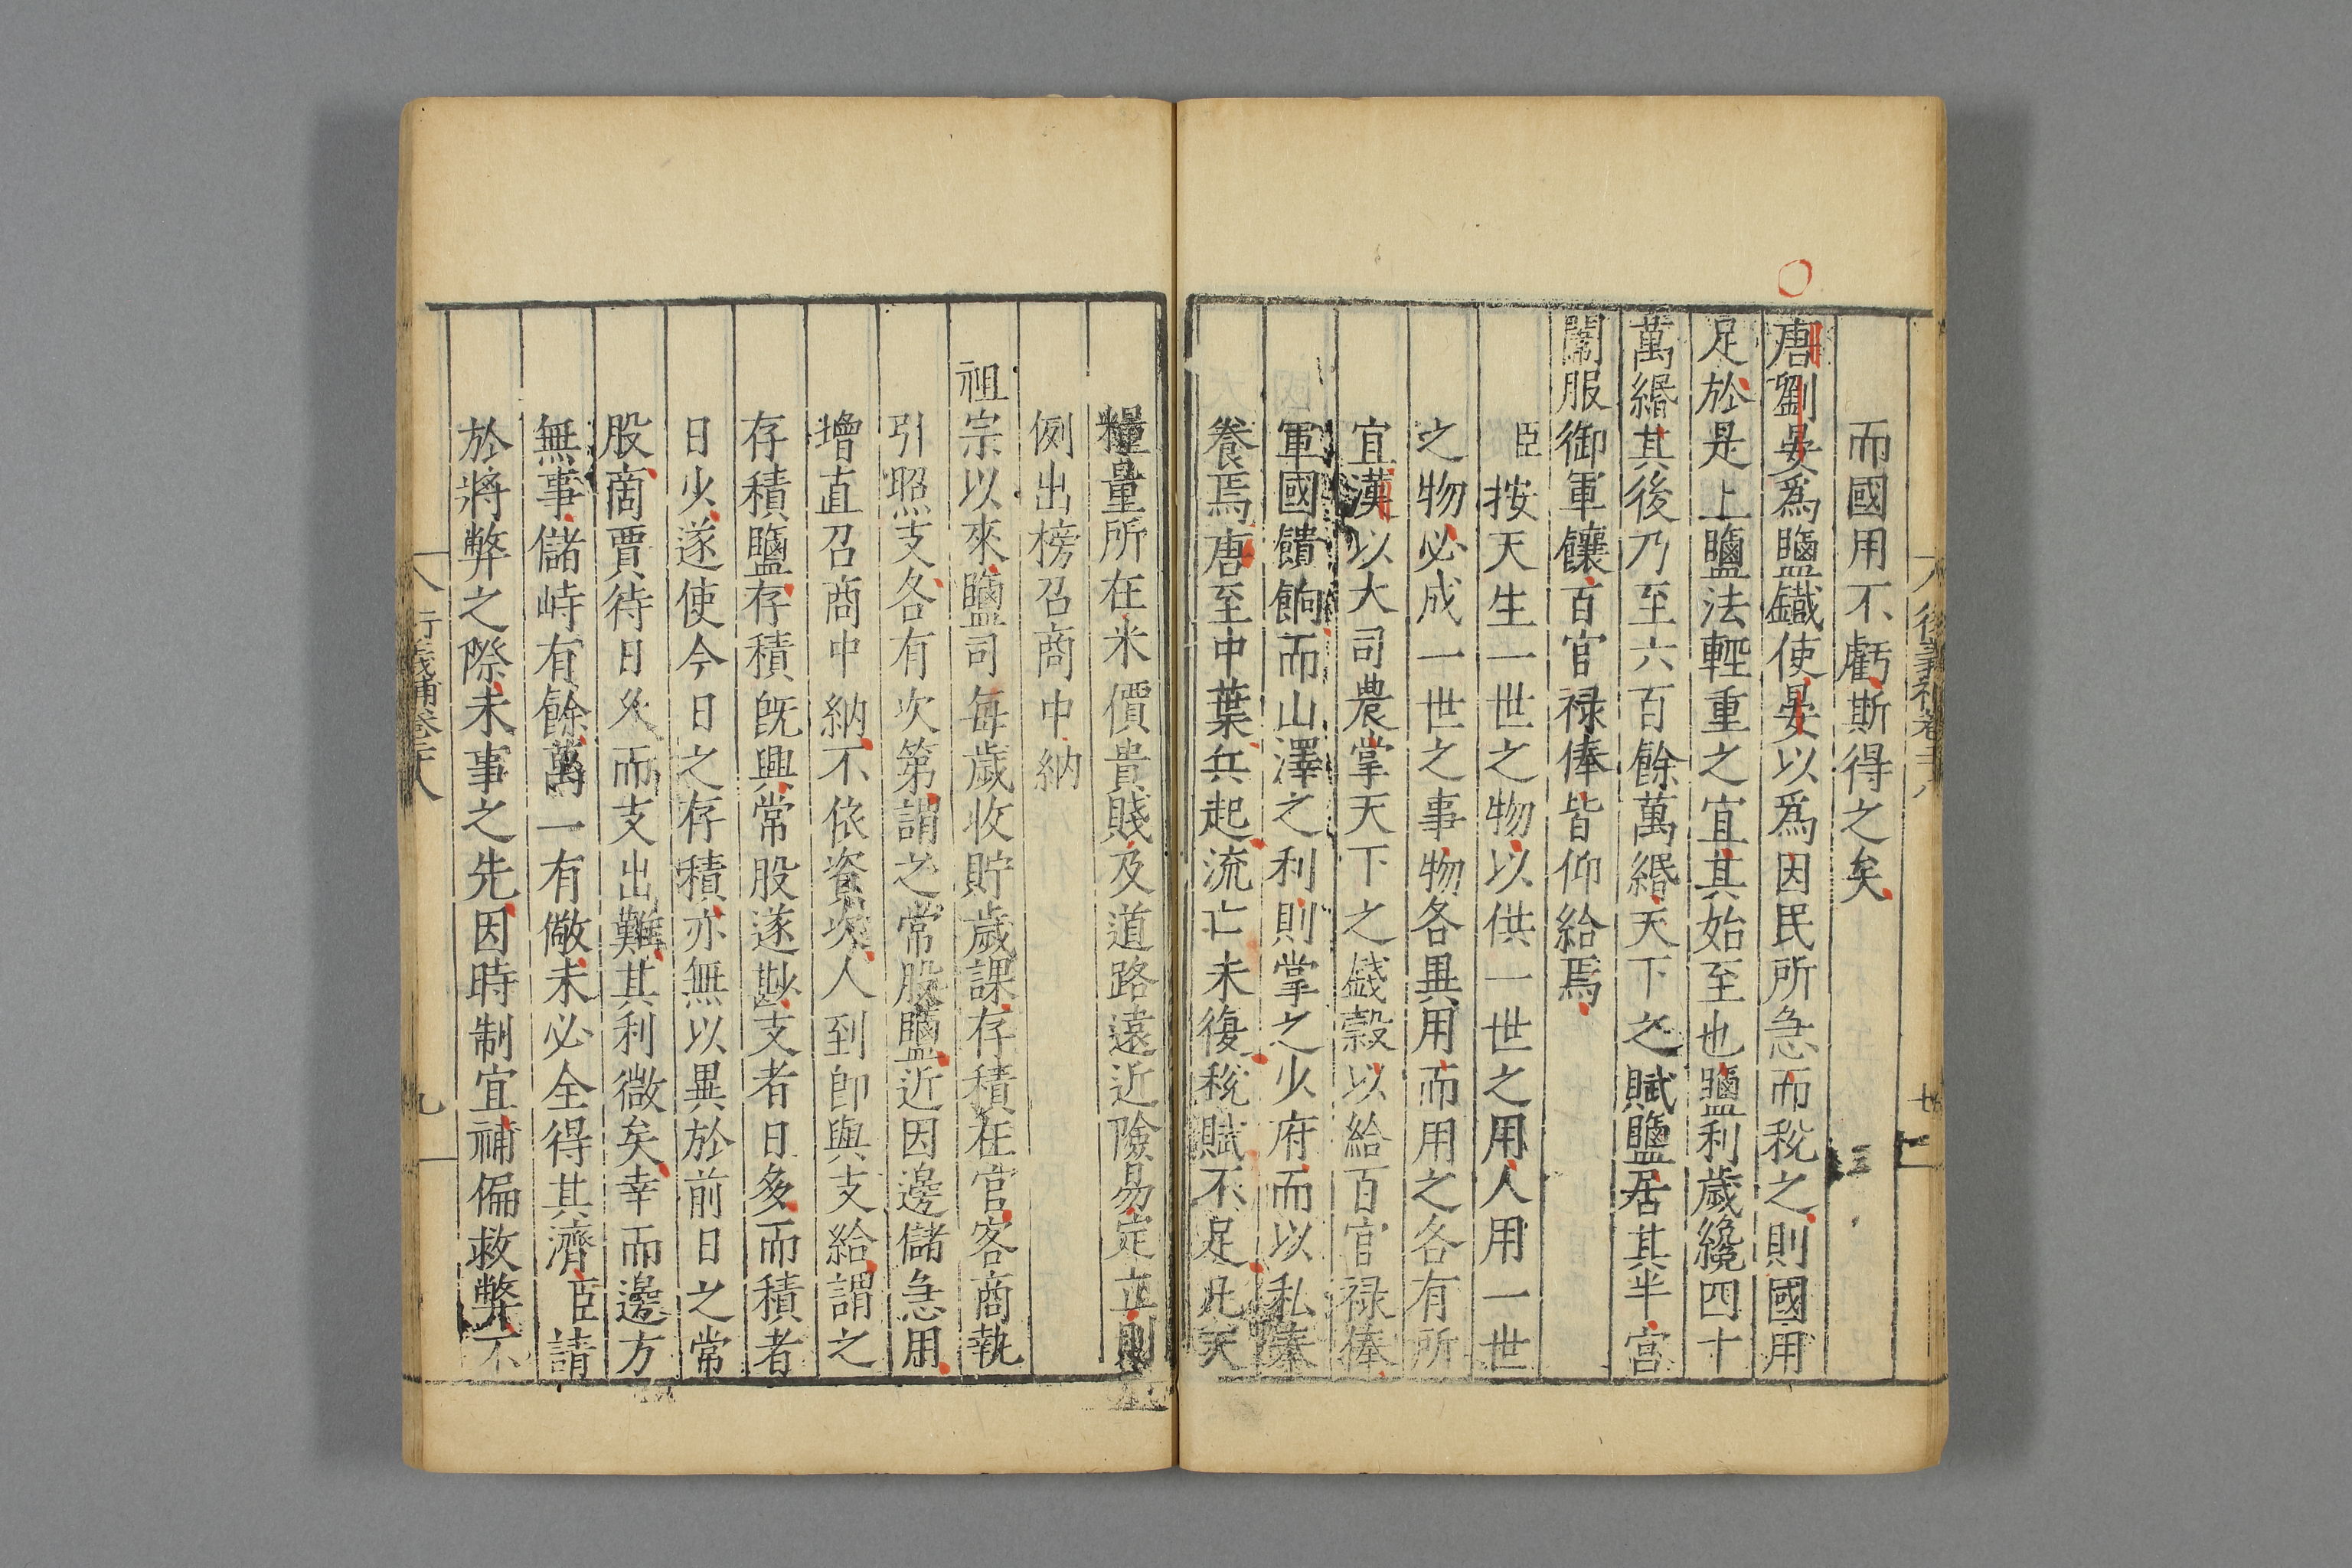 而國用不虧斯得之矣
唐劉晏爲鹽鐵使晏以爲因民所急而稅之則國用
足於是上鹽法輕重之宜其始至也鹽利歲纔四十
萬緡其後乃至六百餘萬緡天下之賦鹽居其半宮
闈服御軍饟百官禄俸皆仰給焉
臣按天生一世之物以供一世之用人用一世
之物必成一世之事物各異用而用之各有所
宜漢以大司農掌天下之錢穀以給百官禄俸
軍國饋餉而山澤之利則掌之少府而以私奉
養焉唐至中葉兵起流亡未復稅賦不足此天
糧量所在米價貴賤及道路遠近險易定立則
例出榜召商中納
祖宗以來鹽司每歲收貯歲課存積在官客商執
引照支各有次第謂之常股鹽近因邊儲急用
增直召商中納不依資次人到即與支給謂之
存積鹽存積既興常股遂尠支者日多而積者
日少遂使今日之存積亦無以異於前日之常
股商賈待日久而支出難其利微矣幸而邊方
無事儲峙有餘萬一有儆未必全得其濟臣請
於將弊之際未事之先因時制宜補偏救弊不
行義補卷二十八
九